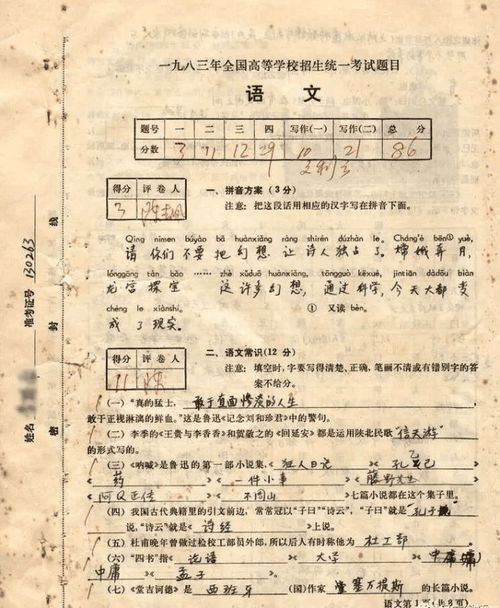 一九八三年全国高等学校招生统一考试题目
语 文
题号 一 二 三 四 写作(一) 写作(二) 总分
分数 3 11 12 29 10 21 86
得分 评卷人
3
一、拼音方案(3分)
注意:把这段话用相应的汉字写在拼音下面。
Qǐng nǐmen bùyào bǎ huànxiǎng ràng shīrén dúzhàn le. Cháng'é bēn① yuè,
请 你们 不要 把幻想 让 诗人 独占了。嫦娥奔月,
lónggōng tàn bǎo …… zhè xǔduō huànxiǎng, tōngguò kēxué, jīntiān dàdōu biàn
龙宫探宝 这许多幻想,通过科学,今天大都变
chéng le xiànshí. ① 又读 bèn。
成了现实。
得分 评卷人
11
二、语文常识(12分)
注意:填空时,字要写得清楚、正确,笔画不清或有错别字的答案不给分。
(一)“真的猛士, 敢于直面惨淡的人生
敢于正视淋漓的鲜血。”这是鲁迅《记念刘和珍君》中的警句。
(二)李季的《王贵与李香香》和贺敬之的《回延安》都是运用陕北民歌“信天游”
的形式写的。
(三)《呐喊》是鲁迅的第一部小说集,《狂人日记》《孔乙己》
《药》《一件小事》《藤野先生》
《阿Q正传》《不周山》七篇小说都在这个集子里。
(四)我国古代典籍里的引文前边,常常冠以“子曰”“诗云”,“子曰”就是孔子
说,“诗云”就是《诗经》上说。
(五)杜甫晚年曾做过检校工部员外郎,所以后人有时称他为 杜工部。
(六)“四书”指《论语》《大学》《中庸》
《孟子》
(七)《堂吉诃德》是 西班牙 (国)作家 塞万提斯 的长篇小说。
语文第1页(共8页)
姓名
准考证号 130263
密 封 线